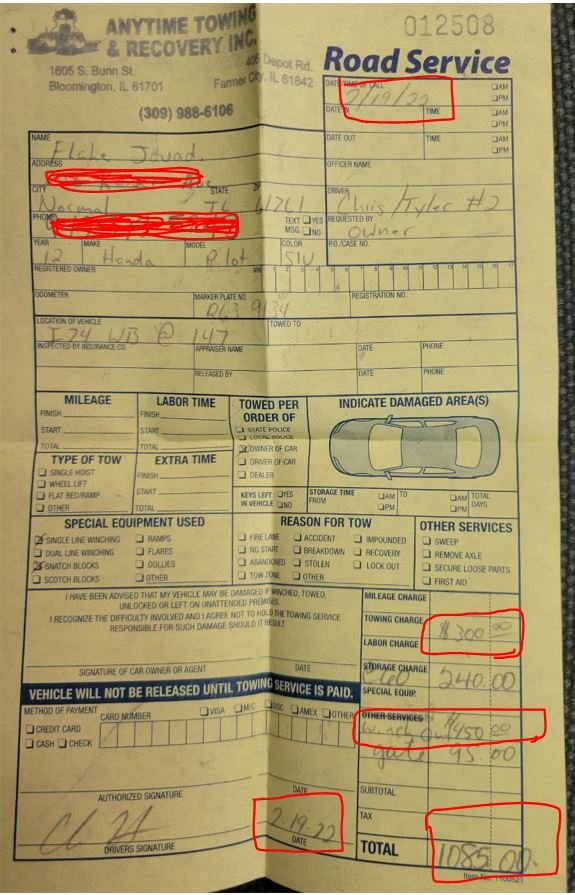 ANYTIME TOWING
& RECOVERY INC.
1605 S. Bunn St.
Bloomington, IL 61701
406 Depot Rd.
Farmer City, IL 61842
(309) 988-6106
012508
Road Service
DATE/TIME OF CALL
2/19/22
AM
PM
DATE IN TIME AM PM
DATE OUT TIME AM PM
OFFICER NAME
NAME
ADDRESS
CITY STATE
Normal IL 61761
PHONE
TEXT YES
MSG. NO
DRIVER
Chris/Tyler #2
REQUESTED BY
owner
P.O./CASE NO.
YEAR MAKE MODEL COLOR
12 Honda Pilot
REGISTERED OWNER VIN 1 2 3 4 5 6 7 8 9 10 11 12 13 14 15 16 17
ODOMETER MARKER PLATE NO. REGISTRATION NO.
9134
LOCATION OF VEHICLE TOWED TO
I74 WB @ 147
INSPECTED BY INSURANCE CO. APPRAISER NAME DATE PHONE
RELEASED BY DATE PHONE
MILEAGE
FINISH
START
TOTAL
LABOR TIME
FINISH
START
TOTAL
TOWED PER
ORDER OF
STATE POLICE
LOCAL POLICE
OWNER OF CAR
DRIVER OF CAR
DEALER
INDICATE DAMAGED AREA(S)
TYPE OF TOW
SINGLE HOIST
WHEEL LIFT
FLAT BED/RAMP
OTHER
EXTRA TIME
FINISH
START
TOTAL
KEYS LEFT YES
IN VEHICLE NO
STORAGE TIME
FROM AM PM TO AM PM TOTAL DAYS
SPECIAL EQUIPMENT USED
SINGLE LINE WINCHING RAMPS
DUAL LINE WINCHING FLARES
SNATCH BLOCKS DOLLIES
SCOTCH BLOCKS OTHER
REASON FOR TOW
FIRE LANE ACCIDENT IMPOUNDED
NO START BREAKDOWN RECOVERY
ABANDONED STOLEN LOCK OUT
TOW ZONE OTHER
OTHER SERVICES
SWEEP
REMOVE AXLE
SECURE LOOSE PARTS
FIRST AID
I HAVE BEEN ADVISED THAT MY VEHICLE MAY BE DAMAGED IF WINCHED, TOWED,
UNLOCKED OR LEFT ON UNATTENDED PREMISES.
I RECOGNIZE THE DIFFICULTY INVOLVED AND I AGREE NOT TO HOLD THE TOWING SERVICE
RESPONSIBLE FOR SUCH DAMAGE SHOULD IT RESULT
SIGNATURE OF CAR OWNER OR AGENT DATE
MILEAGE CHARGE
TOWING CHARGE
$300 00
LABOR CHARGE
STORAGE CHARGE
240.00
SPECIAL EQUIP.
OTHER SERVICES
winch out $450 00
gate 95.00
SUBTOTAL
TAX
TOTAL 1085 00
VEHICLE WILL NOT BE RELEASED UNTIL TOWING SERVICE IS PAID.
METHOD OF PAYMENT CARD NUMBER VISA M/C DISC AMEX OTHER
CREDIT CARD
CASH CHECK
AUTHORIZED SIGNATURE DATE
2-19-22
DRIVERS SIGNATURE DATE